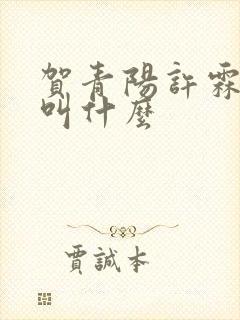 賀青陽許霖
叫什麼
賈誠本